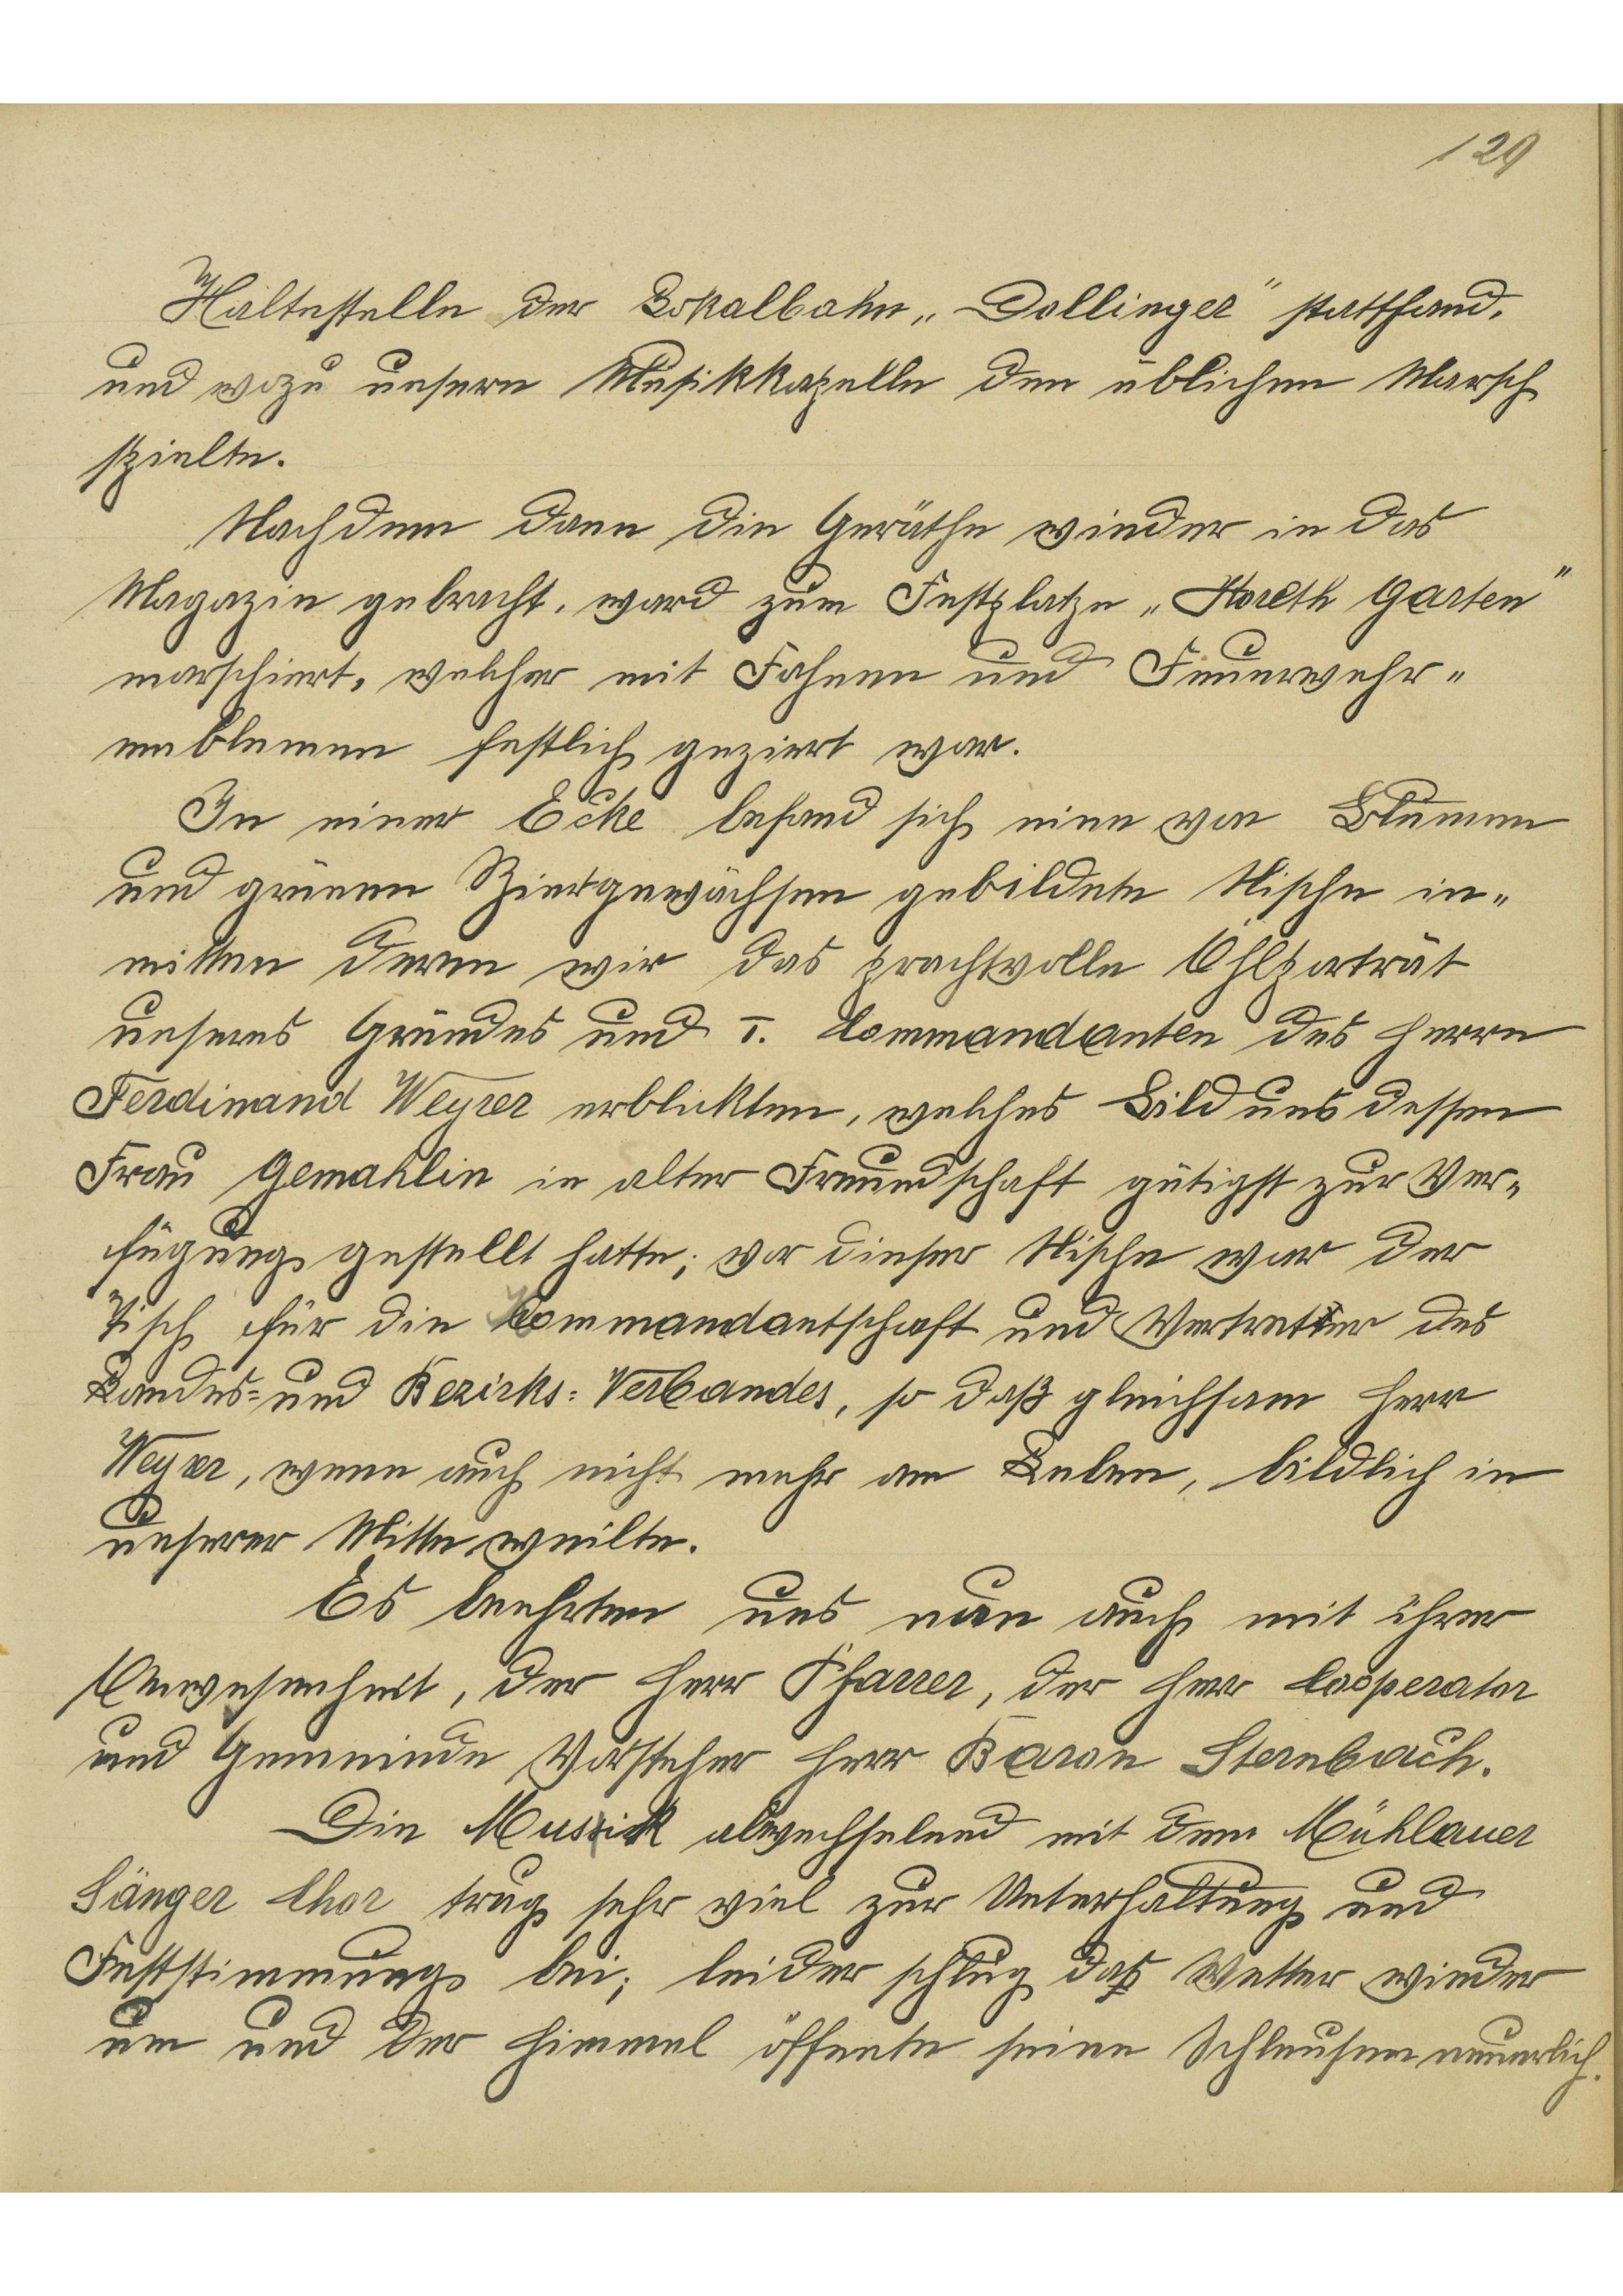 129
Haltestelle der Lokalbahn „Dollinger" stattfand,
und wozu unsere Musikkapelle den üblichen Marsch
spielte.
Nachdem dann die Geräthe wieder in das
Magazin gebracht, ward zum Festplatze „Koreth Garten"
marschiert, welcher mit Fahnen und Feuerwehr-
emblemen festlich geziert war.
In einer Ecke befand sich eine von Blumen
und grünen Ziergewächsen gebildete Nische in-
mitten deren wir das prachtvolle Öhlporträt
unseres Gründes und I. Commandanten des Herrn
Ferdinand Weyrer erblickten, welches Bild uns dessen
Frau Gemahlin in alter Freundschaft gütigst zur Ver-
fügung gestellt hatte; vor dieser Nische war der
Tisch für die Kommandantschaft und Vertreter des
Landes- und Bezirks-Verbandes, so daß gleichsam Herr
Weyrer, wenn auch nicht mehr am Leben, bildlich in
unserer Mitte weilte.
Es beehrten uns nun auch mit ihrer
Anwesenheit, der Herr Pfarrer, der Herr Cooperator
und Gemeinde Vorsteher Herr Baron Sternbach.
Die Musik abwechselnd mit dem Mühlauer
Sänger Chor trug sehr viel zur Unterhaltung und
Feststimmung bei; leider schlug das Wetter wieder
um und der Himmel öffente seine Schleusen neuerlich.